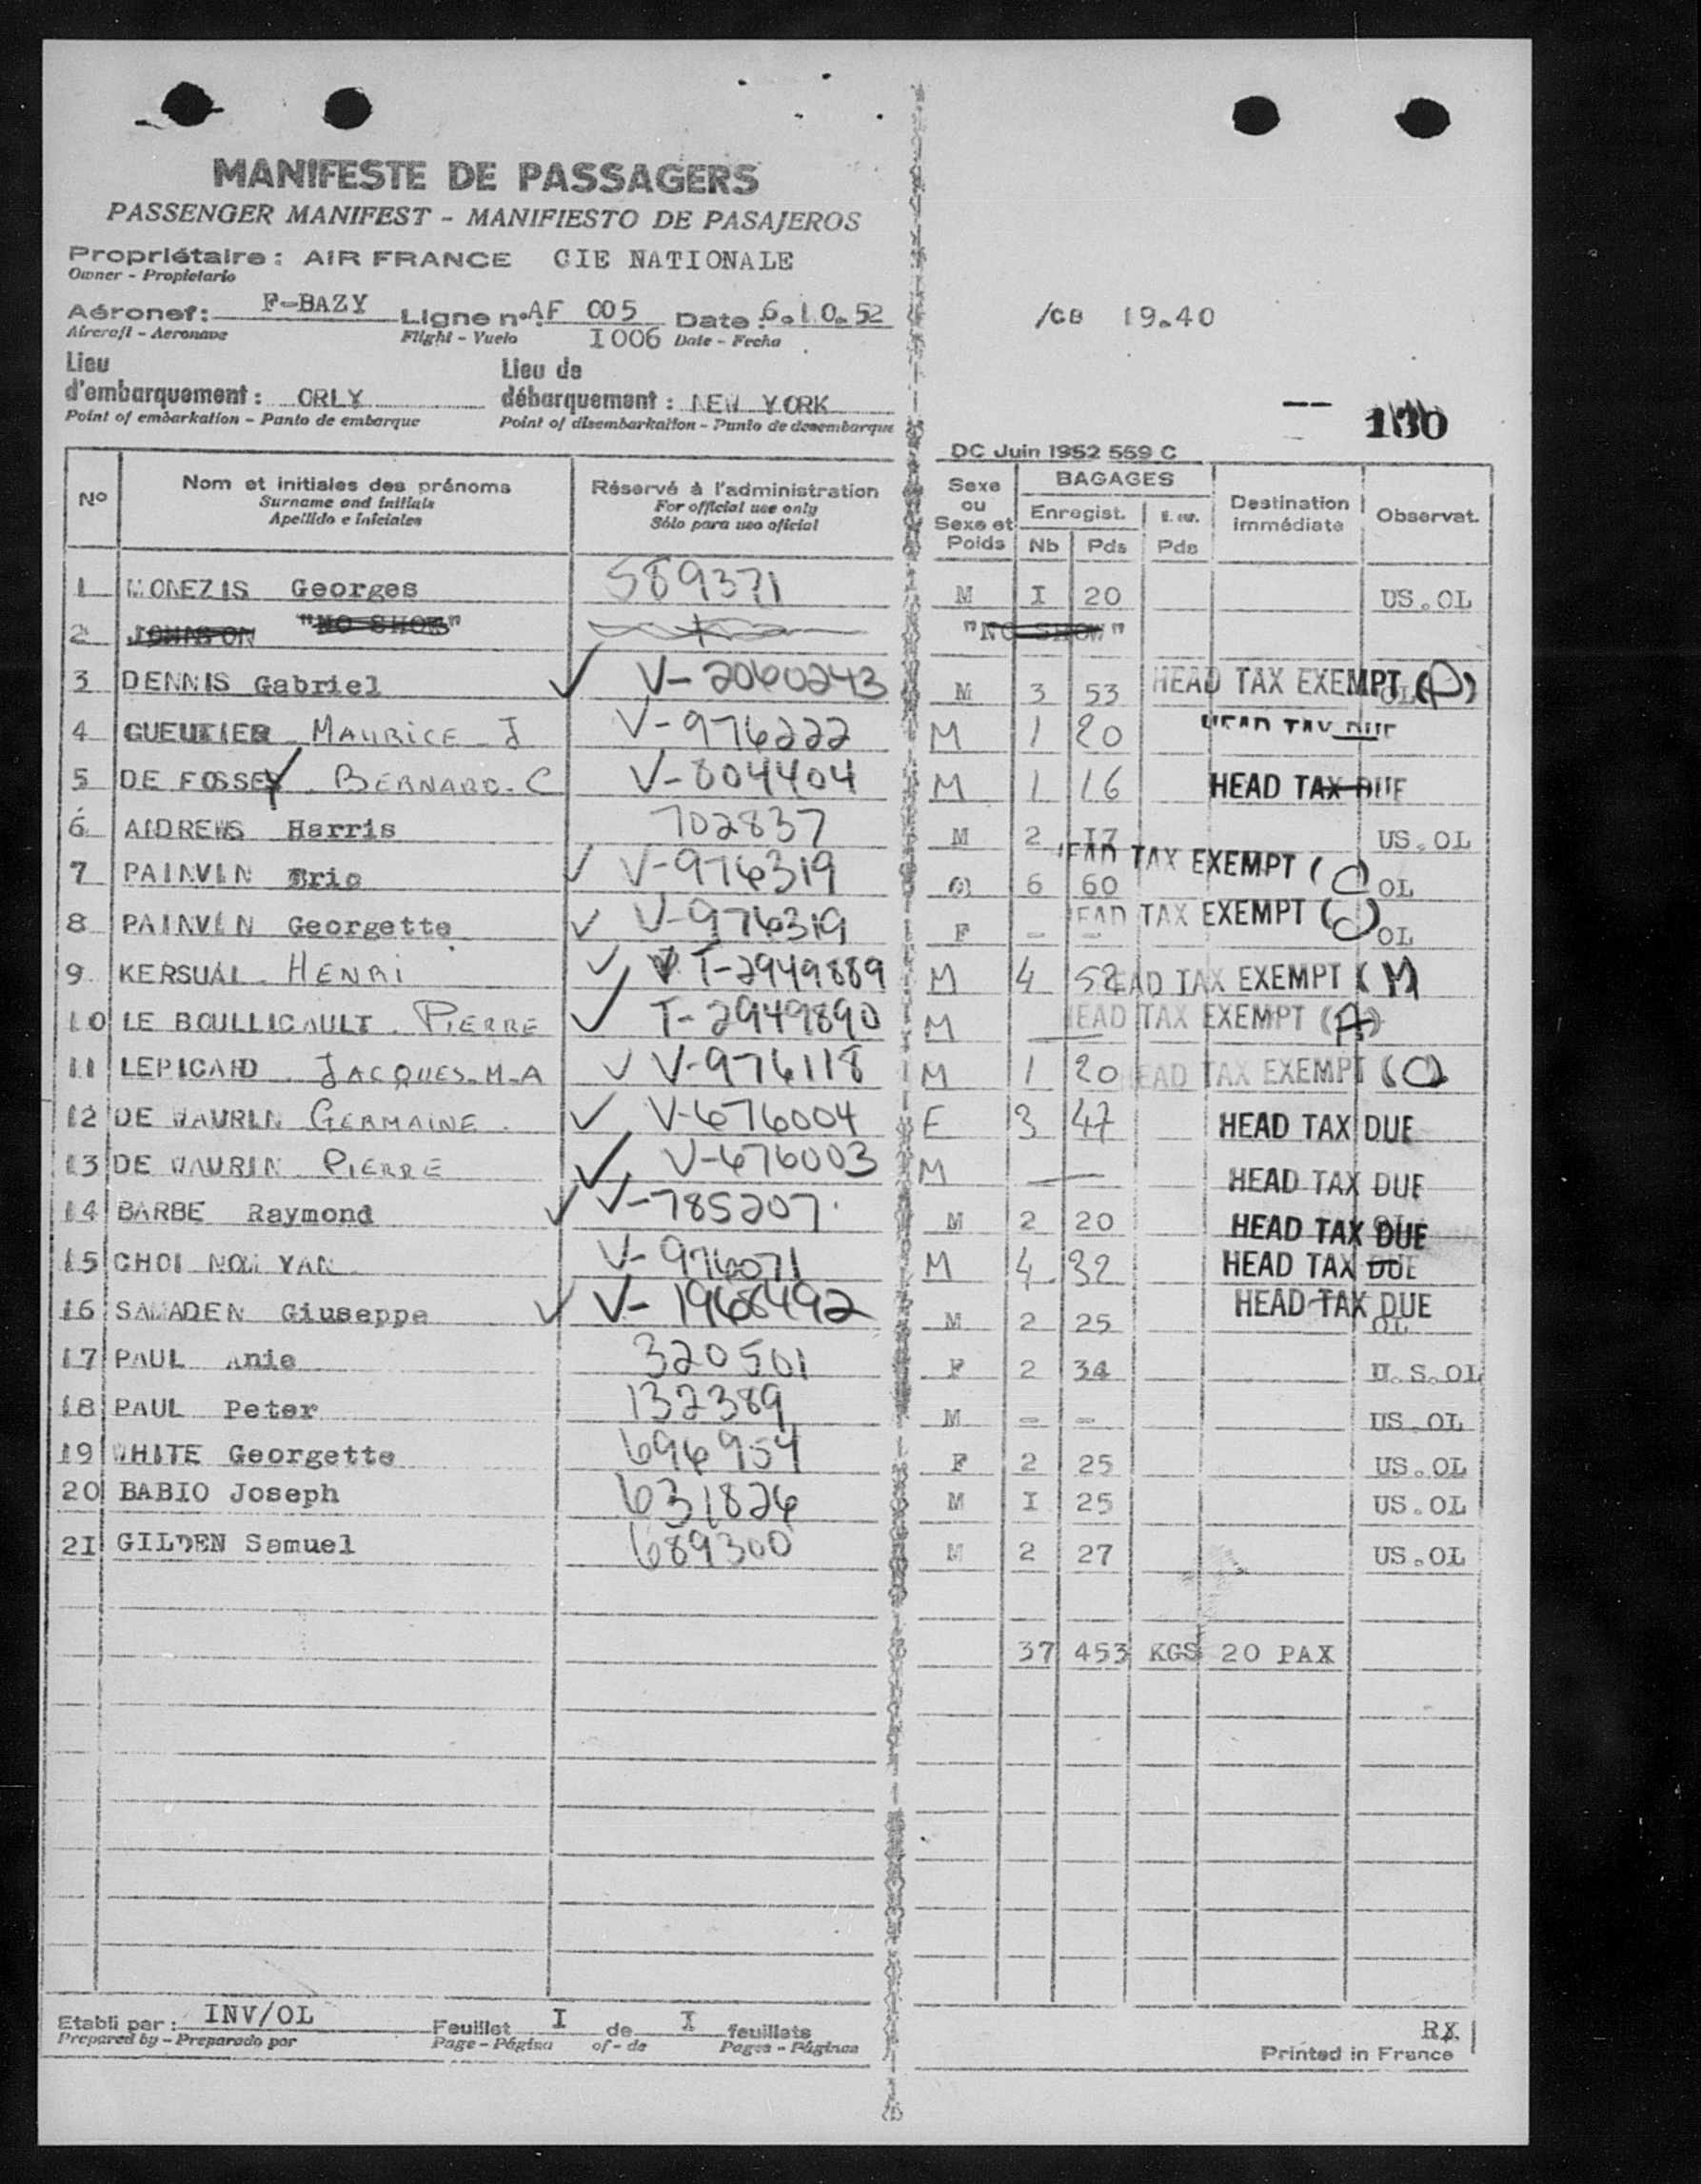 MANIFESTE DE PASSAGERS
PASSENGER MANIFEST - MANIFIESTO DE PASAJEROS
Propriétaire : AIR FRANCE CIE NATIONALE
Owner - Propietario
Aéronef : F-BAZY Ligne n° AF 005 Date : 6.10.52 /CB 19.40
Aircraft - Aeronave Flight - Vuelo I006 Date - Fecha
Lieu d'embarquement : ORLY Lieu de débarquement : NEW YORK
Point of embarkation - Punto de embarque Point of disembarkation - Punto de desembarque
130
DC Juin 1952 559 C
N° Nom et initiales des prénoms Réservé à l'administration Sexe ou Sexe et Poids BAGAGES Destination immédiate Observat.
Surname and initials For official use only Enregist.
Apellido e iniciales Sólo para uso oficial Nb Pds Pds
1 MONEZIS Georges 589371 M I 20 US.OL
2 JOHNSON "NO SHOW" "NO SHOW"
3 DENNIS Gabriel V-2060243 M 3 53 HEAD TAX EXEMPT OL
4 GUEUTIER MAURICE J V-976222 M 1 20 HEAD TAX DUE
5 DE FOSSEY BERNARD.C V-804404 M 1 16 HEAD TAX DUE
6 ANDREWS Harris 702837 M 2 I7 US.OL
7 PAINVIN Eric V-976319 6 60 HEAD TAX EXEMPT (C) OL
8 PAINVIN Georgette V-976319 F - - HEAD TAX EXEMPT (C) OL
9 KERSUAL HENRI T-2949889 M 4 52 HEAD TAX EXEMPT (M)
10 LE BOULLICAULT PIERRE T-2949890 M — HEAD TAX EXEMPT (A)
11 LEPICARD JACQUES-M-A V-976118 M 1 20 HEAD TAX EXEMPT (C)
12 DE WAURIN GERMAINE V-676004 F 3 47 HEAD TAX DUE
13 DE WAURIN PIERRE V-676003 M — HEAD TAX DUE
14 BARBE Raymond V-785207 M 2 20 HEAD TAX DUE OL
15 CHOI NOW YAN V-976071 M 4 32 HEAD TAX DUE
16 SAMADEN Giuseppe V-1968492 M 2 25 HEAD TAX DUE OL
17 PAUL Anie 320501 F 2 34 U.S.OL
18 PAUL Peter 132389 M - - US.OL
19 WHITE Georgette 696954 F 2 25 US.OL
20 BABIO Joseph 631826 M I 25 US.OL
2I GILDEN Samuel 689300 M 2 27 US.OL
37 453 KGS 20 PAX
Etabli par : INV/OL Feuillet I de I feuillets
Prepared by - Preparado por Page - Página of - de Pages - Páginas
RX
Printed in France